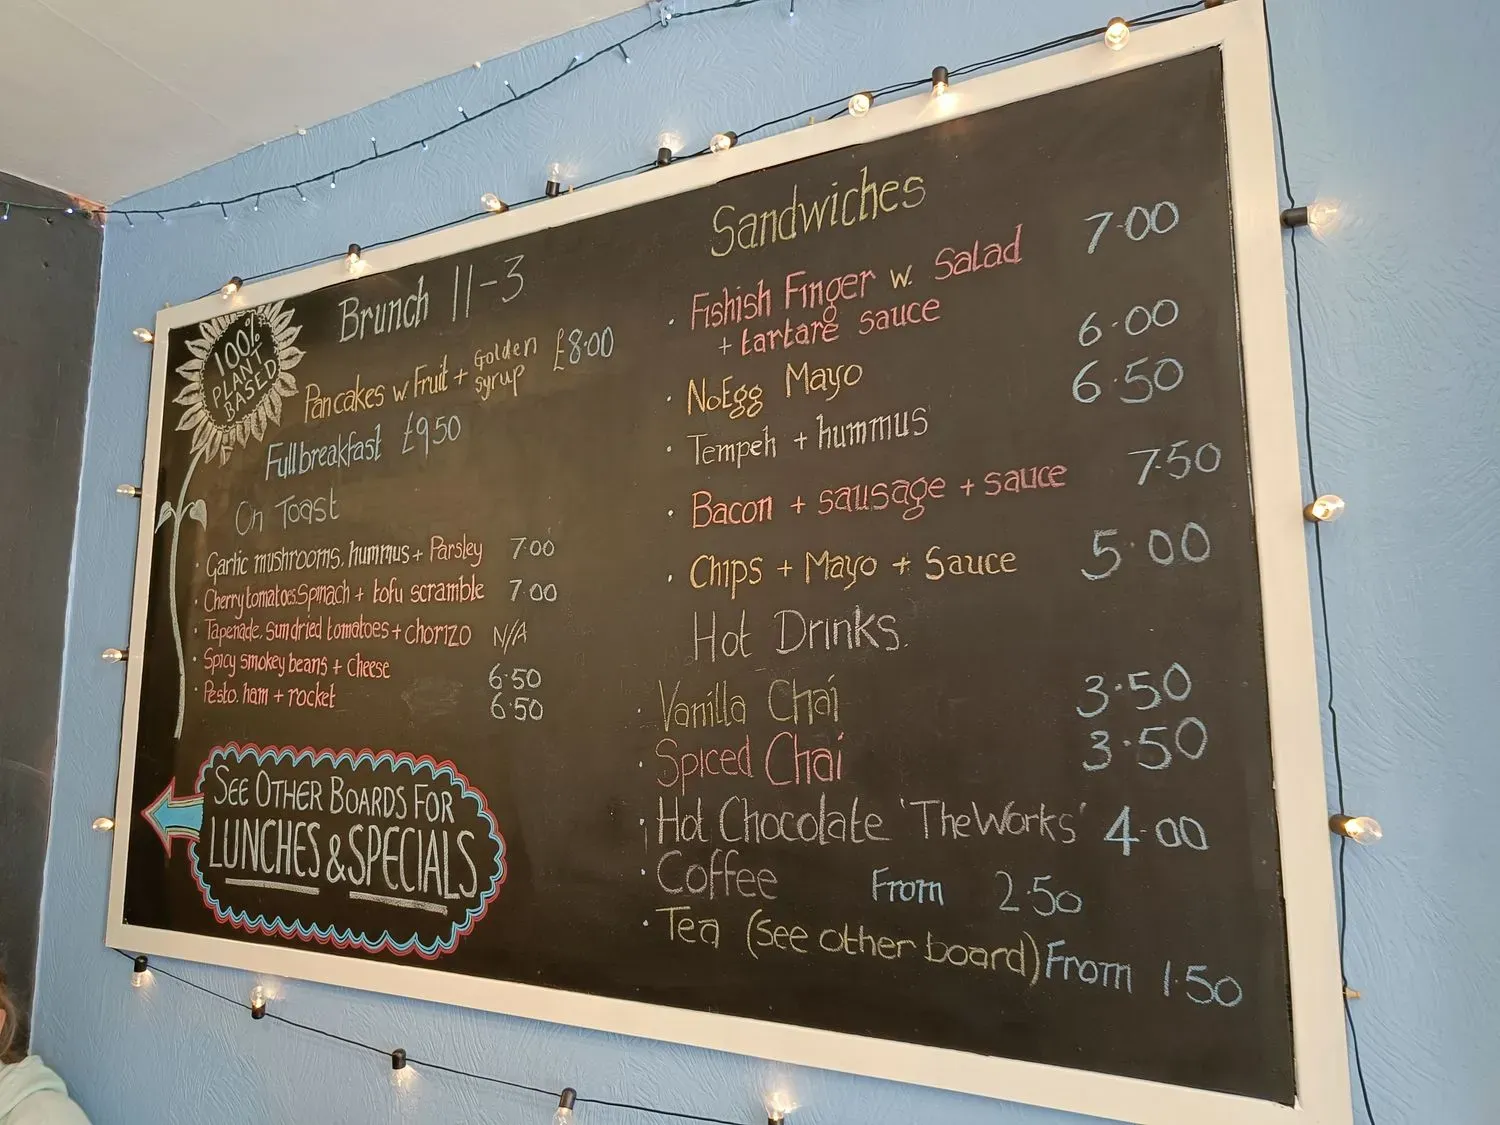 100%
PLANT
BASED
Brunch 11-3
Pancakes w Fruit + Golden syrup £8.00
Full breakfast £9.50
On Toast
· Garlic mushrooms, hummus + Parsley 7.00
· Cherry tomatoes, Spinach + tofu scramble 7.00
· Tapenade, sundried tomatoes + chorizo N/A
· Spicy smokey beans + cheese 6.50
· Pesto, ham + rocket 6.50
SEE OTHER BOARDS FOR
LUNCHES & SPECIALS
Sandwiches
· Fishish Finger w. Salad 7.00
+ tartare sauce
· NoEgg Mayo 6.00
· Tempeh + hummus 6.50
· Bacon + sausage + sauce 7.50
· Chips + Mayo + Sauce 5.00
Hot Drinks
· Vanilla Chai 3.50
· Spiced Chai 3.50
· Hot Chocolate 'The Works' 4.00
· Coffee From 2.50
· Tea (See other board) From 1.50